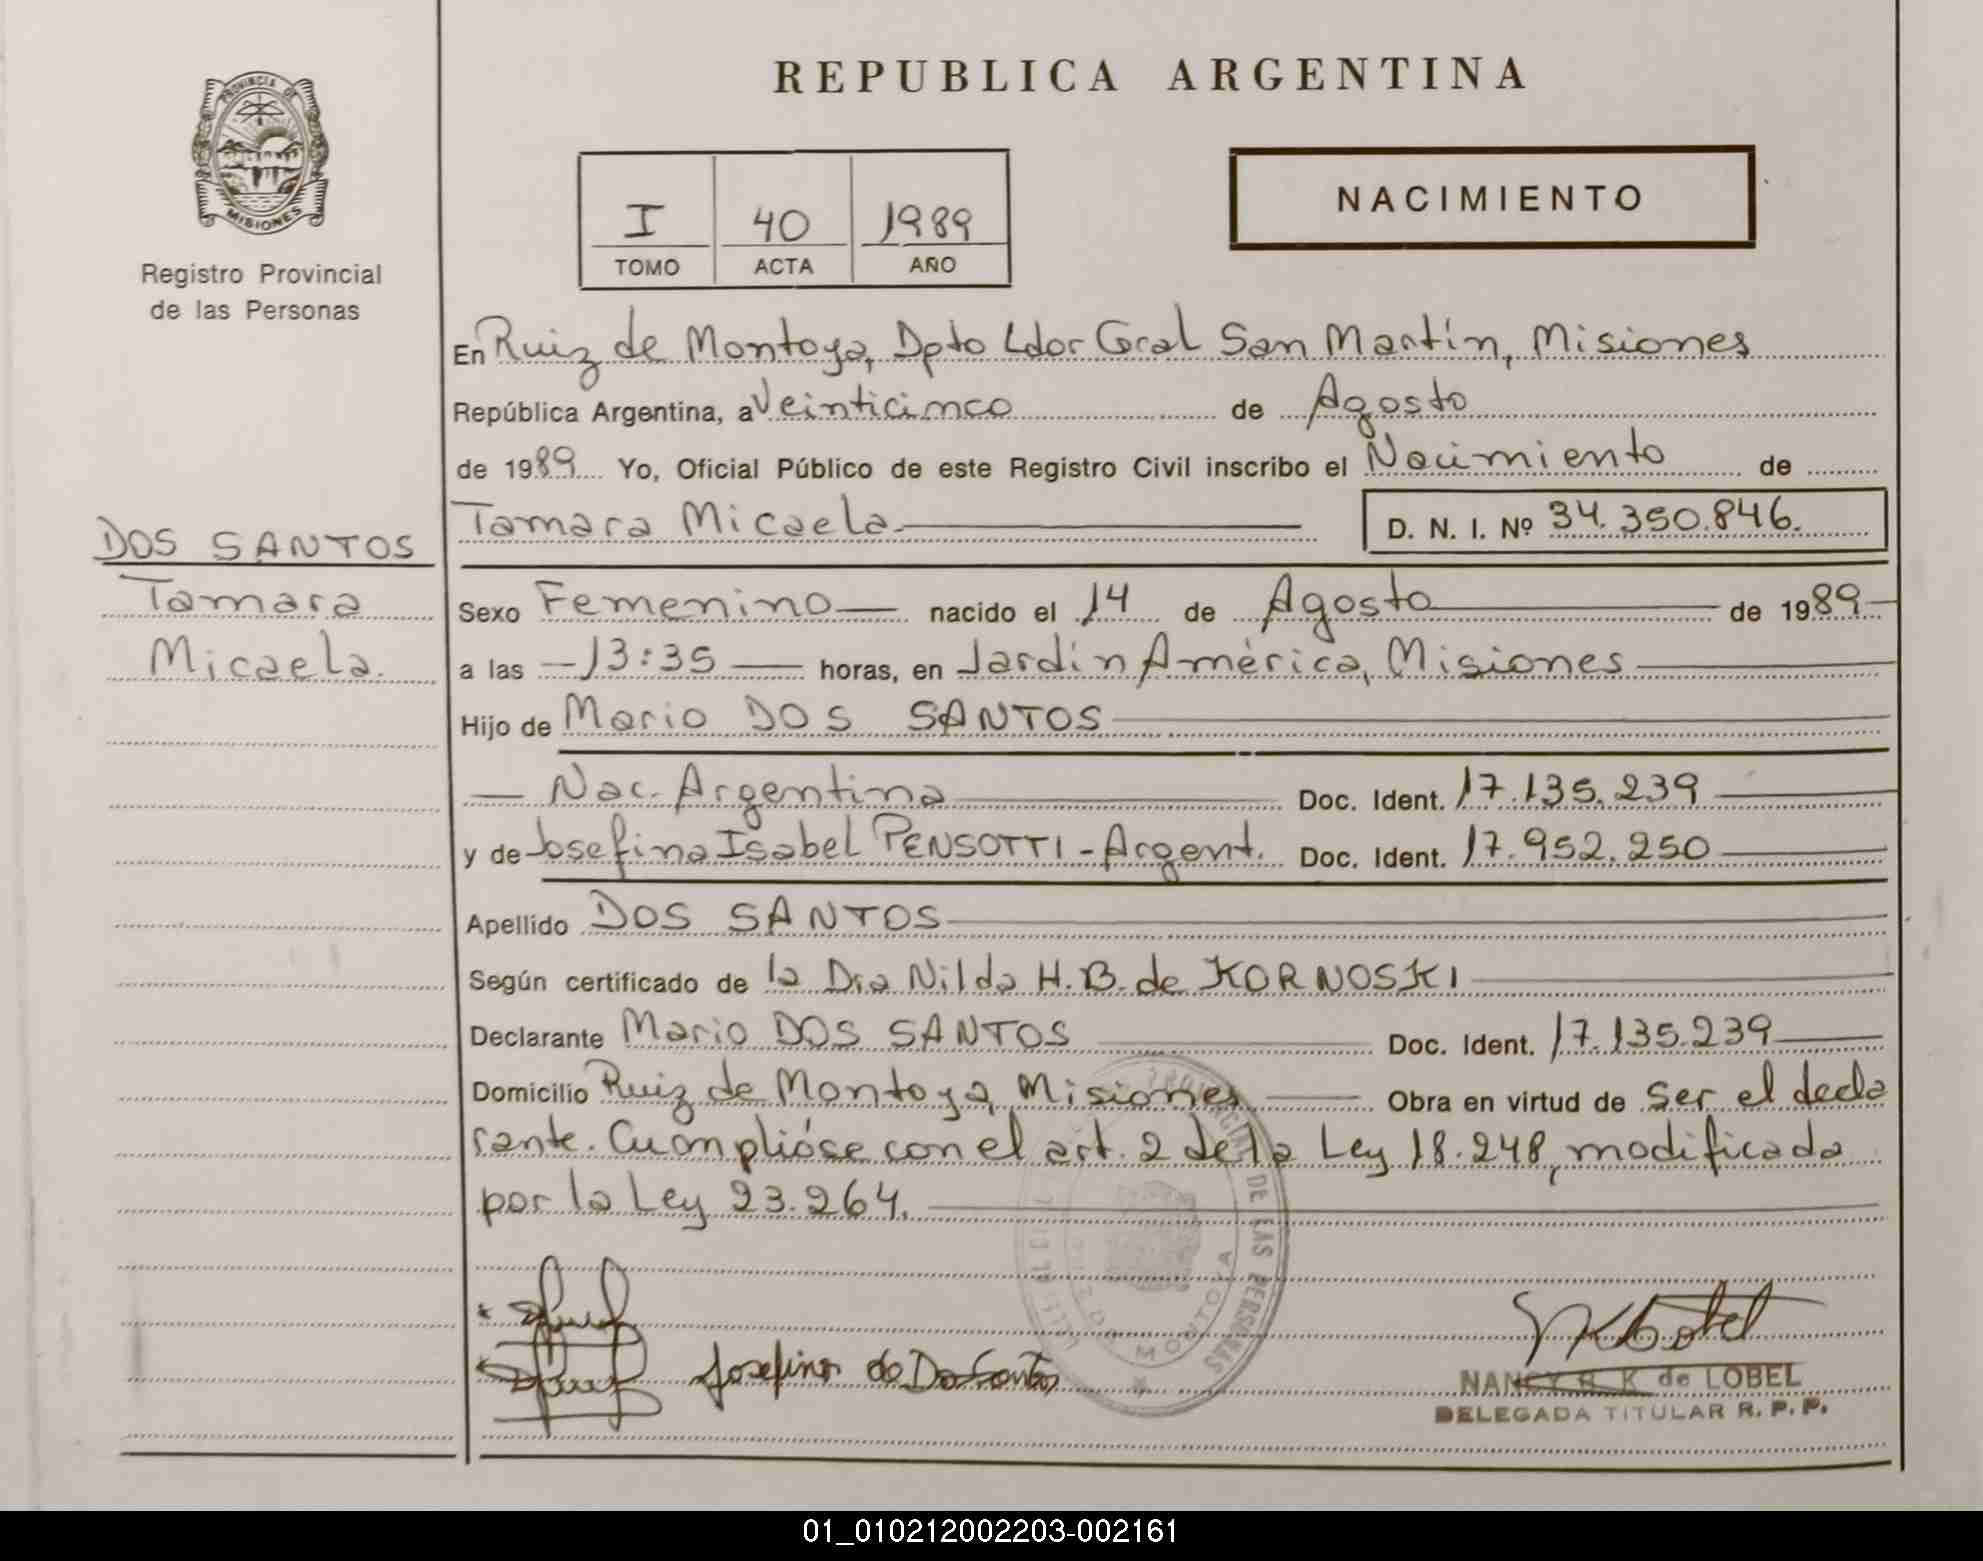 REPUBLICA ARGENTINA
PROVINCIA DE
MISIONES
Registro Provincial
de las Personas
I 40 1989
TOMO ACTA AÑO
NACIMIENTO
En Ruiz de Montoya, Dpto Ldor Gral San Martín, Misiones
República Argentina, a Veinticinco de Agosto
de 1989 Yo, Oficial Público de este Registro Civil inscribo el Nacimiento de
Tamara Micaela. D. N. I. Nº 34.350.846.
DOS SANTOS
Tamara
Micaela.
Sexo Femenino nacido el 14 de Agosto de 1989
a las 13:35 horas, en Jardín América, Misiones
Hijo de Mario DOS SANTOS
Nac. Argentina Doc. Ident. 17.135.239
y de Josefina Isabel PENSOTTI - Argent. Doc. Ident. 17.952.250
Apellido DOS SANTOS
Según certificado de la Dra Nilda H. B. de KORNOSKI
Declarante Mario DOS SANTOS Doc. Ident. 17.135.239
Domicilio Ruiz de Montoya, Misiones Obra en virtud de ser el decla
rante. Cumplióse con el art. 2 de la Ley 18.248, modificada
por la Ley 23.264.
DE LAS PERSONAS
MONTOYA
Josefina de Dos Santos
NANCY R. K de LOBEL
DELEGADA TITULAR R. P. P.
01_010212002203-002161